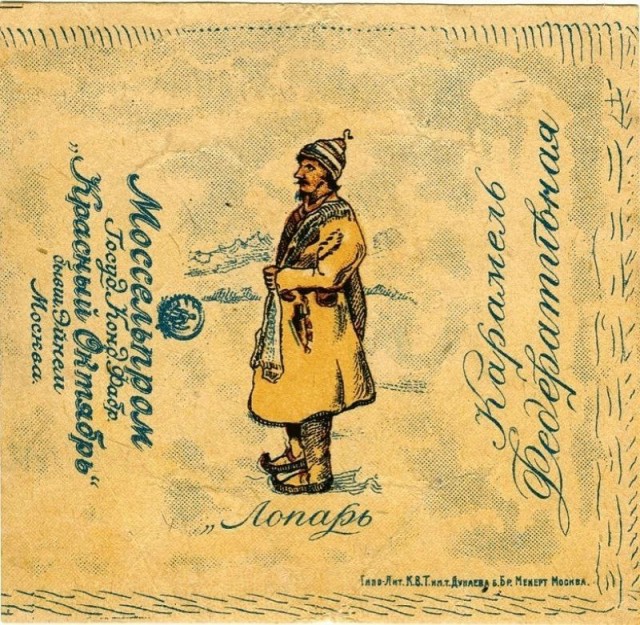 Моссельпром
Госуд. Конд. Фабр.
„Красный Октябрь“
бывш. Эйнем
Москва.
Карамель
Федеративная
„Лопарь
Типо-Лит. К.В.Т. им. т. Дунаева б. Бр. Менерт Москва.